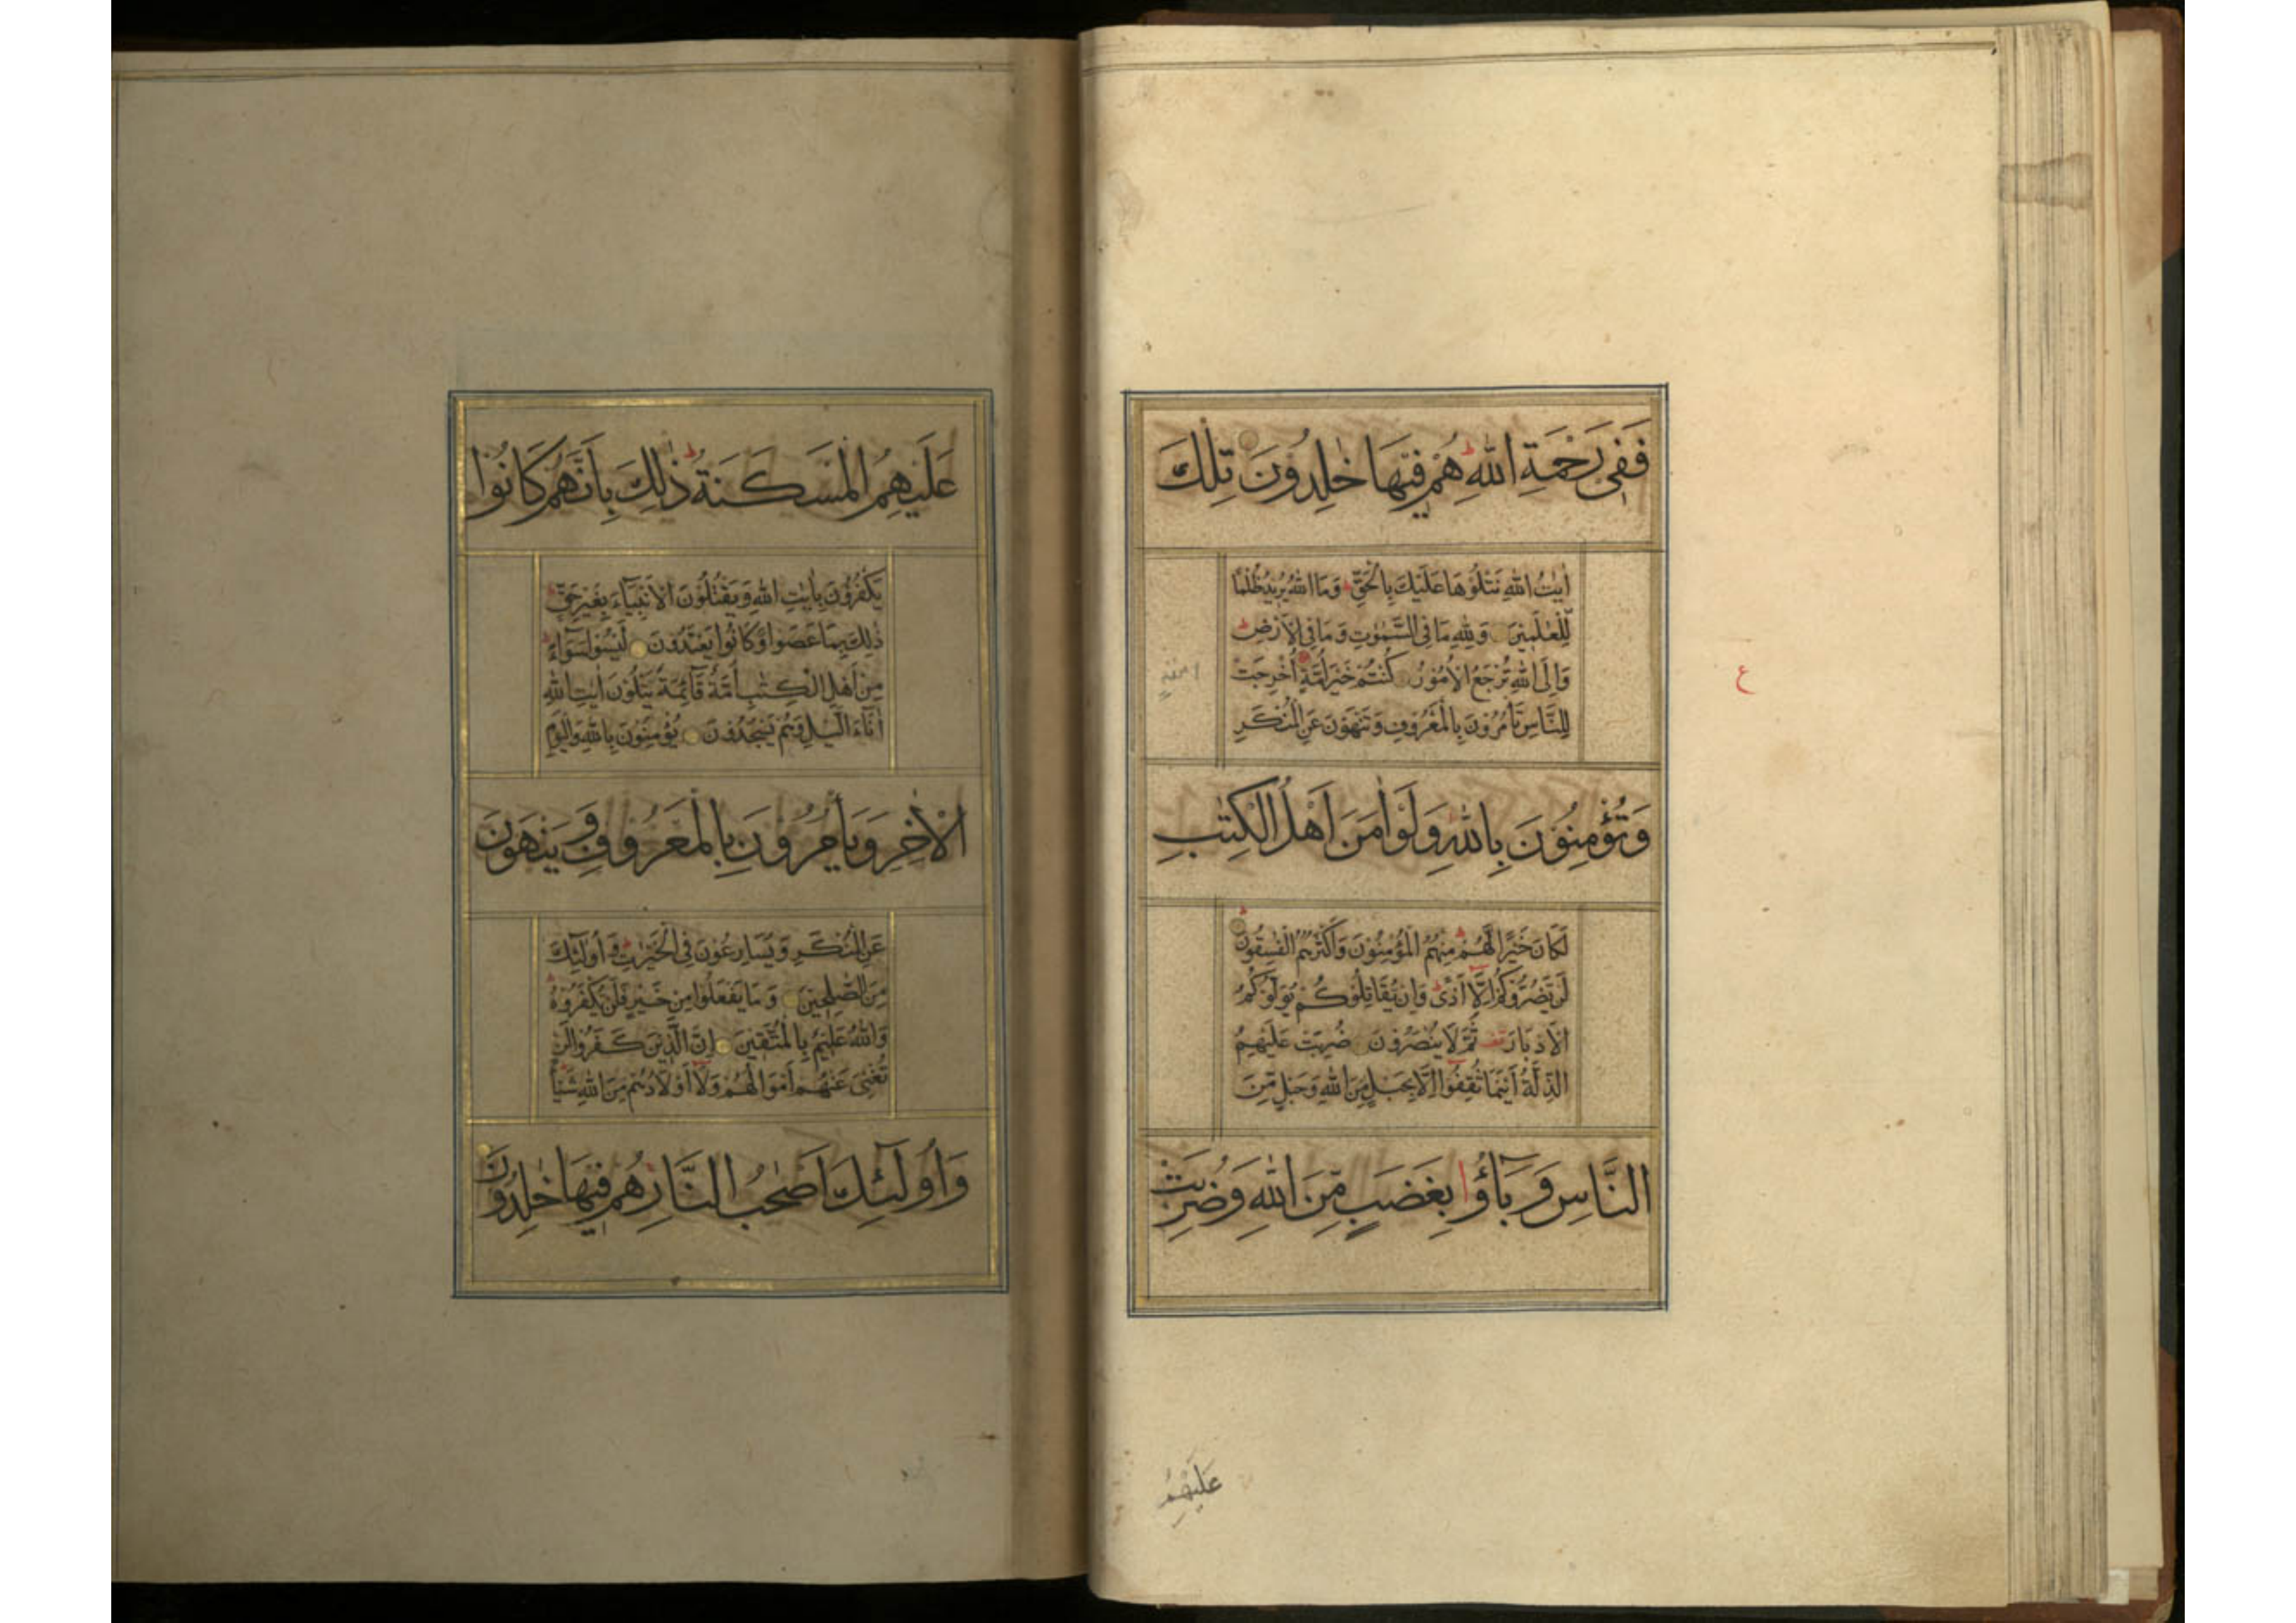 فَفِي رَحْمَةِ اللّٰهِ هُمْ فِيهَا خٰلِدُونَ تِلْكَ
اٰيٰتُ اللّٰهِ نَتْلُوْهَا عَلَيْكَ بِالْحَقِّ ط وَمَا اللّٰهُ يُرِيْدُ ظُلْمًا
لِّلْعٰلَمِيْنَ وَلِلّٰهِ مَا فِي السَّمٰوٰتِ وَمَا فِي الْاَرْضِ ط
وَاِلَى اللّٰهِ تُرْجَعُ الْاُمُوْرُ كُنْتُمْ خَيْرَ اُمَّةٍ اُخْرِجَتْ
ع
لِلنَّاسِ تَأْمُرُوْنَ بِالْمَعْرُوْفِ وَتَنْهَوْنَ عَنِ الْمُنْكَرِ
وَتُؤْمِنُوْنَ بِاللّٰهِ وَلَوْ اٰمَنَ اَهْلُ الْكِتٰبِ
لَكَانَ خَيْرًا لَّهُمْ ط مِنْهُمُ الْمُؤْمِنُوْنَ وَاَكْثَرُهُمُ الْفٰسِقُوْنَ
لَنْ يَّضُرُّوْكُمْ اِلَّا اَذًى ط وَاِنْ يُّقَاتِلُوْكُمْ يُوَلُّوْكُمُ
الْاَدْبَارَ قف ثُمَّ لَا يُنْصَرُوْنَ ضُرِبَتْ عَلَيْهِمُ
الذِّلَّةُ اَيْنَمَا ثُقِفُوْا اِلَّا بِحَبْلٍ مِّنَ اللّٰهِ وَحَبْلٍ مِّنَ
النَّاسِ وَبَاۤؤُا بِغَضَبٍ مِّنَ اللّٰهِ وَضُرِبَتْ
عَلَيْهِمُ
عَلَيْهِمُ الْمَسْكَنَةُ ط ذٰلِكَ بِاَنَّهُمْ كَانُوْا
يَكْفُرُوْنَ بِاٰيٰتِ اللّٰهِ وَيَقْتُلُوْنَ الْاَنْۢبِيَآءَ بِغَيْرِ حَقٍّ ط
ذٰلِكَ بِمَا عَصَوْا وَّكَانُوْا يَعْتَدُوْنَ لَيْسُوْا سَوَآءً ط
مِنْ اَهْلِ الْكِتٰبِ اُمَّةٌ قَآئِمَةٌ يَّتْلُوْنَ اٰيٰتِ اللّٰهِ
اٰنَآءَ الَّيْلِ وَهُمْ يَسْجُدُوْنَ يُؤْمِنُوْنَ بِاللّٰهِ وَالْيَوْمِ
الْاٰخِرِ وَيَأْمُرُوْنَ بِالْمَعْرُوْفِ وَيَنْهَوْنَ
عَنِ الْمُنْكَرِ وَيُسَارِعُوْنَ فِي الْخَيْرٰتِ ط وَاُولٰٓئِكَ
مِنَ الصّٰلِحِيْنَ وَمَا يَفْعَلُوْا مِنْ خَيْرٍ فَلَنْ يُّكْفَرُوْهُ ط
وَاللّٰهُ عَلِيْمٌ بِالْمُتَّقِيْنَ اِنَّ الَّذِيْنَ كَفَرُوْا لَنْ
تُغْنِيَ عَنْهُمْ اَمْوَالُهُمْ وَلَا اَوْلَادُهُمْ مِّنَ اللّٰهِ شَيْئًا
وَاُولٰٓئِكَ اَصْحٰبُ النَّارِ هُمْ فِيْهَا خٰلِدُوْنَ